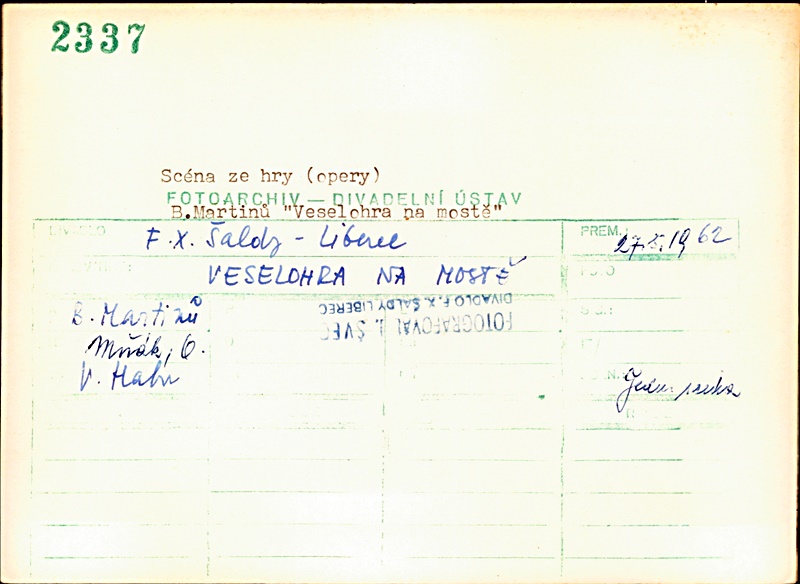 2337
Scéna ze hry (opery)
FOTOARCHIV — DIVADELNÍ ÚSTAV
B.Martinů "Veselohra na mostě"
DIVADLO
F. X. Šaldy - Liberec
PREM.:
1962
VESELOHRA NA MOSTĚ
FOTO
B. Martinů
DIVADLO F. X. ŠALDY LIBEREC
FOTOGRAFOVAL J. ŠVEC
Mňák, O.
V. Hahn